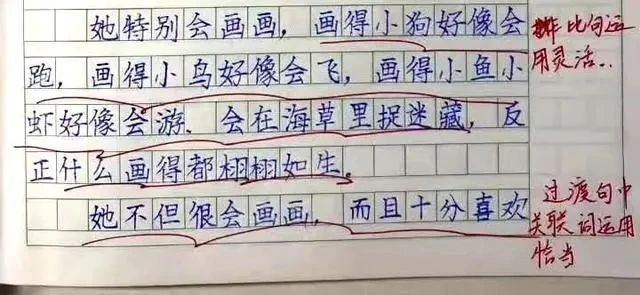 她特别会画画，画得小狗好像会
跑，画得小鸟好像会飞，画得小鱼小
虾好像会游、会在海草里捉迷藏，反
正什么画得都栩栩如生。
她不但很会画画，而且十分喜欢
排比句运
用灵活..
过渡句中
关联词运用
恰当